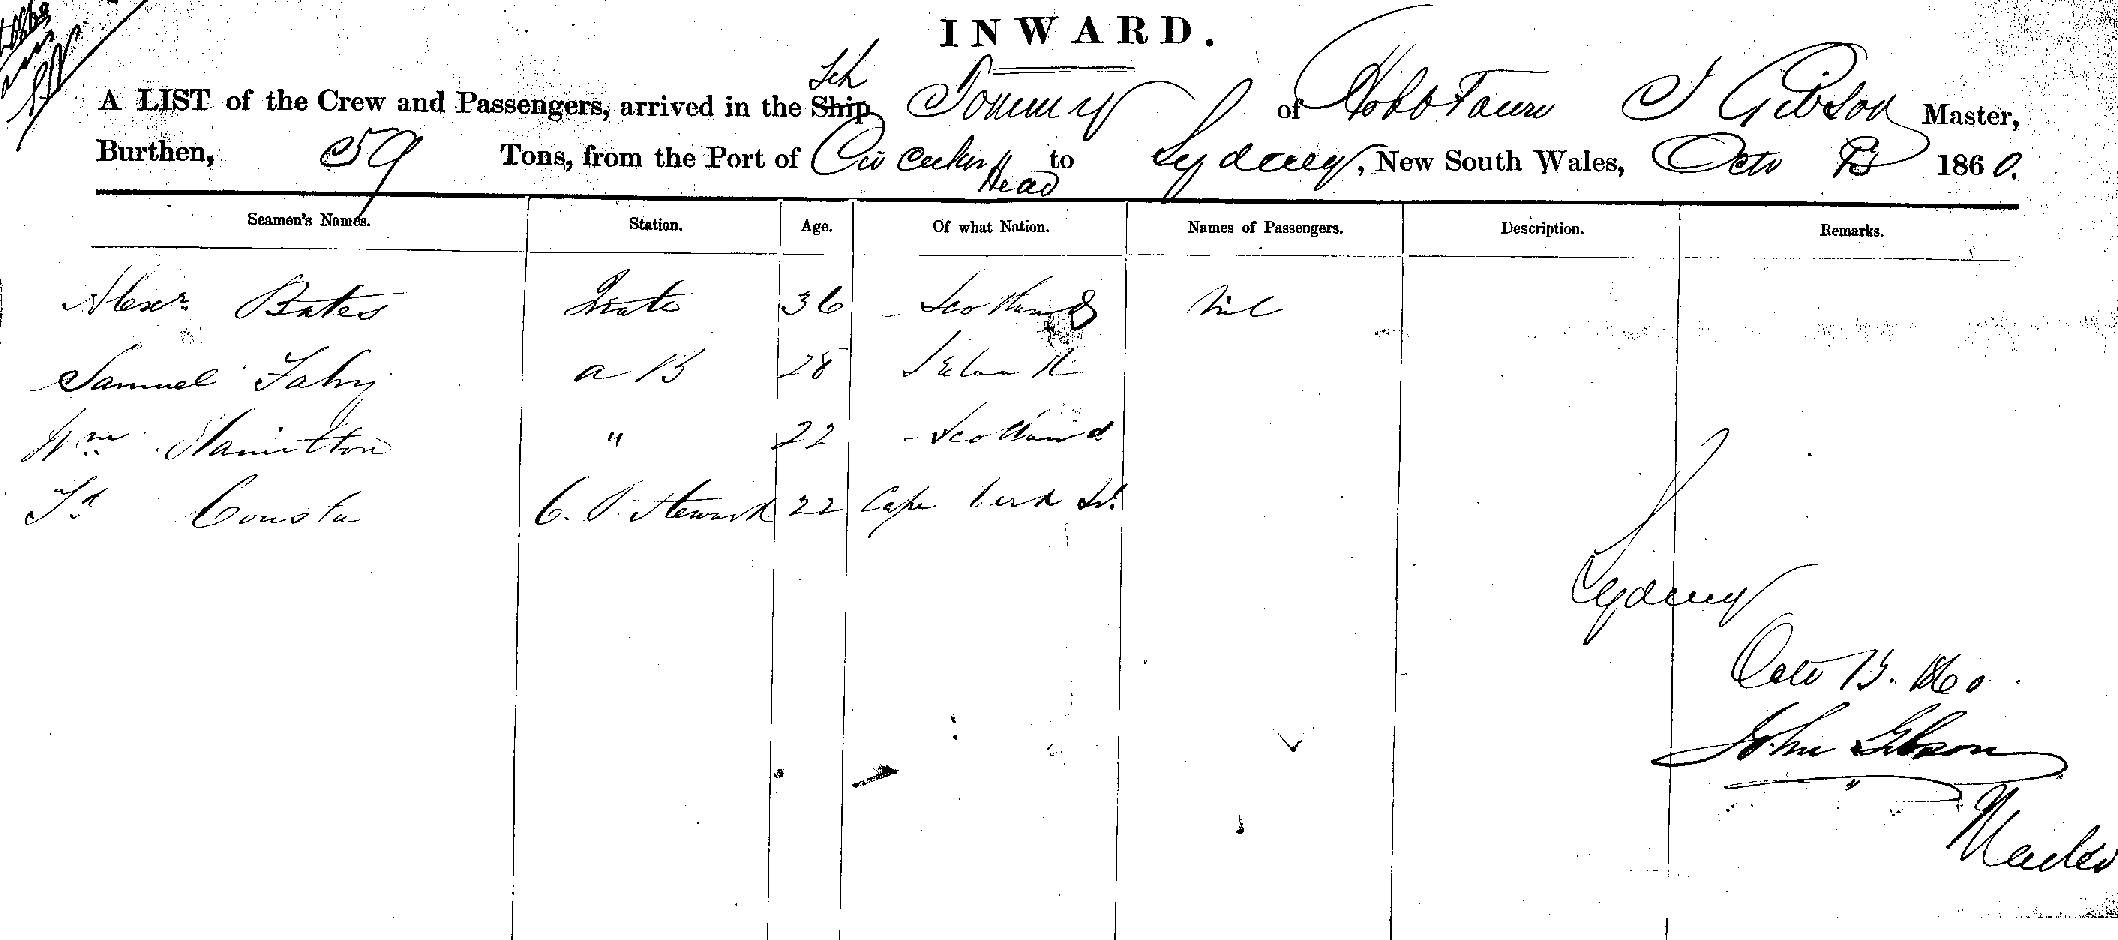 INWARD.
Sch
A LIST of the Crew and Passengers, arrived in the Ship Tommy of Hobt Town J Gibson Master,
Burthen, 59 Tons, from the Port of Circular Head to Sydney, New South Wales, Octr 13 1860.
Seamen's Names. Station. Age. Of what Nation. Names of Passengers. Description. Remarks.
Alexr Bates Mate 36 Scotland Nil
Samuel Fahy a B 28
Wm Hamilton " 22 Scotland
C. & Steward 22 Cape Verd Is.
Sydney
Octr 13. 1860
John Gibson
Master